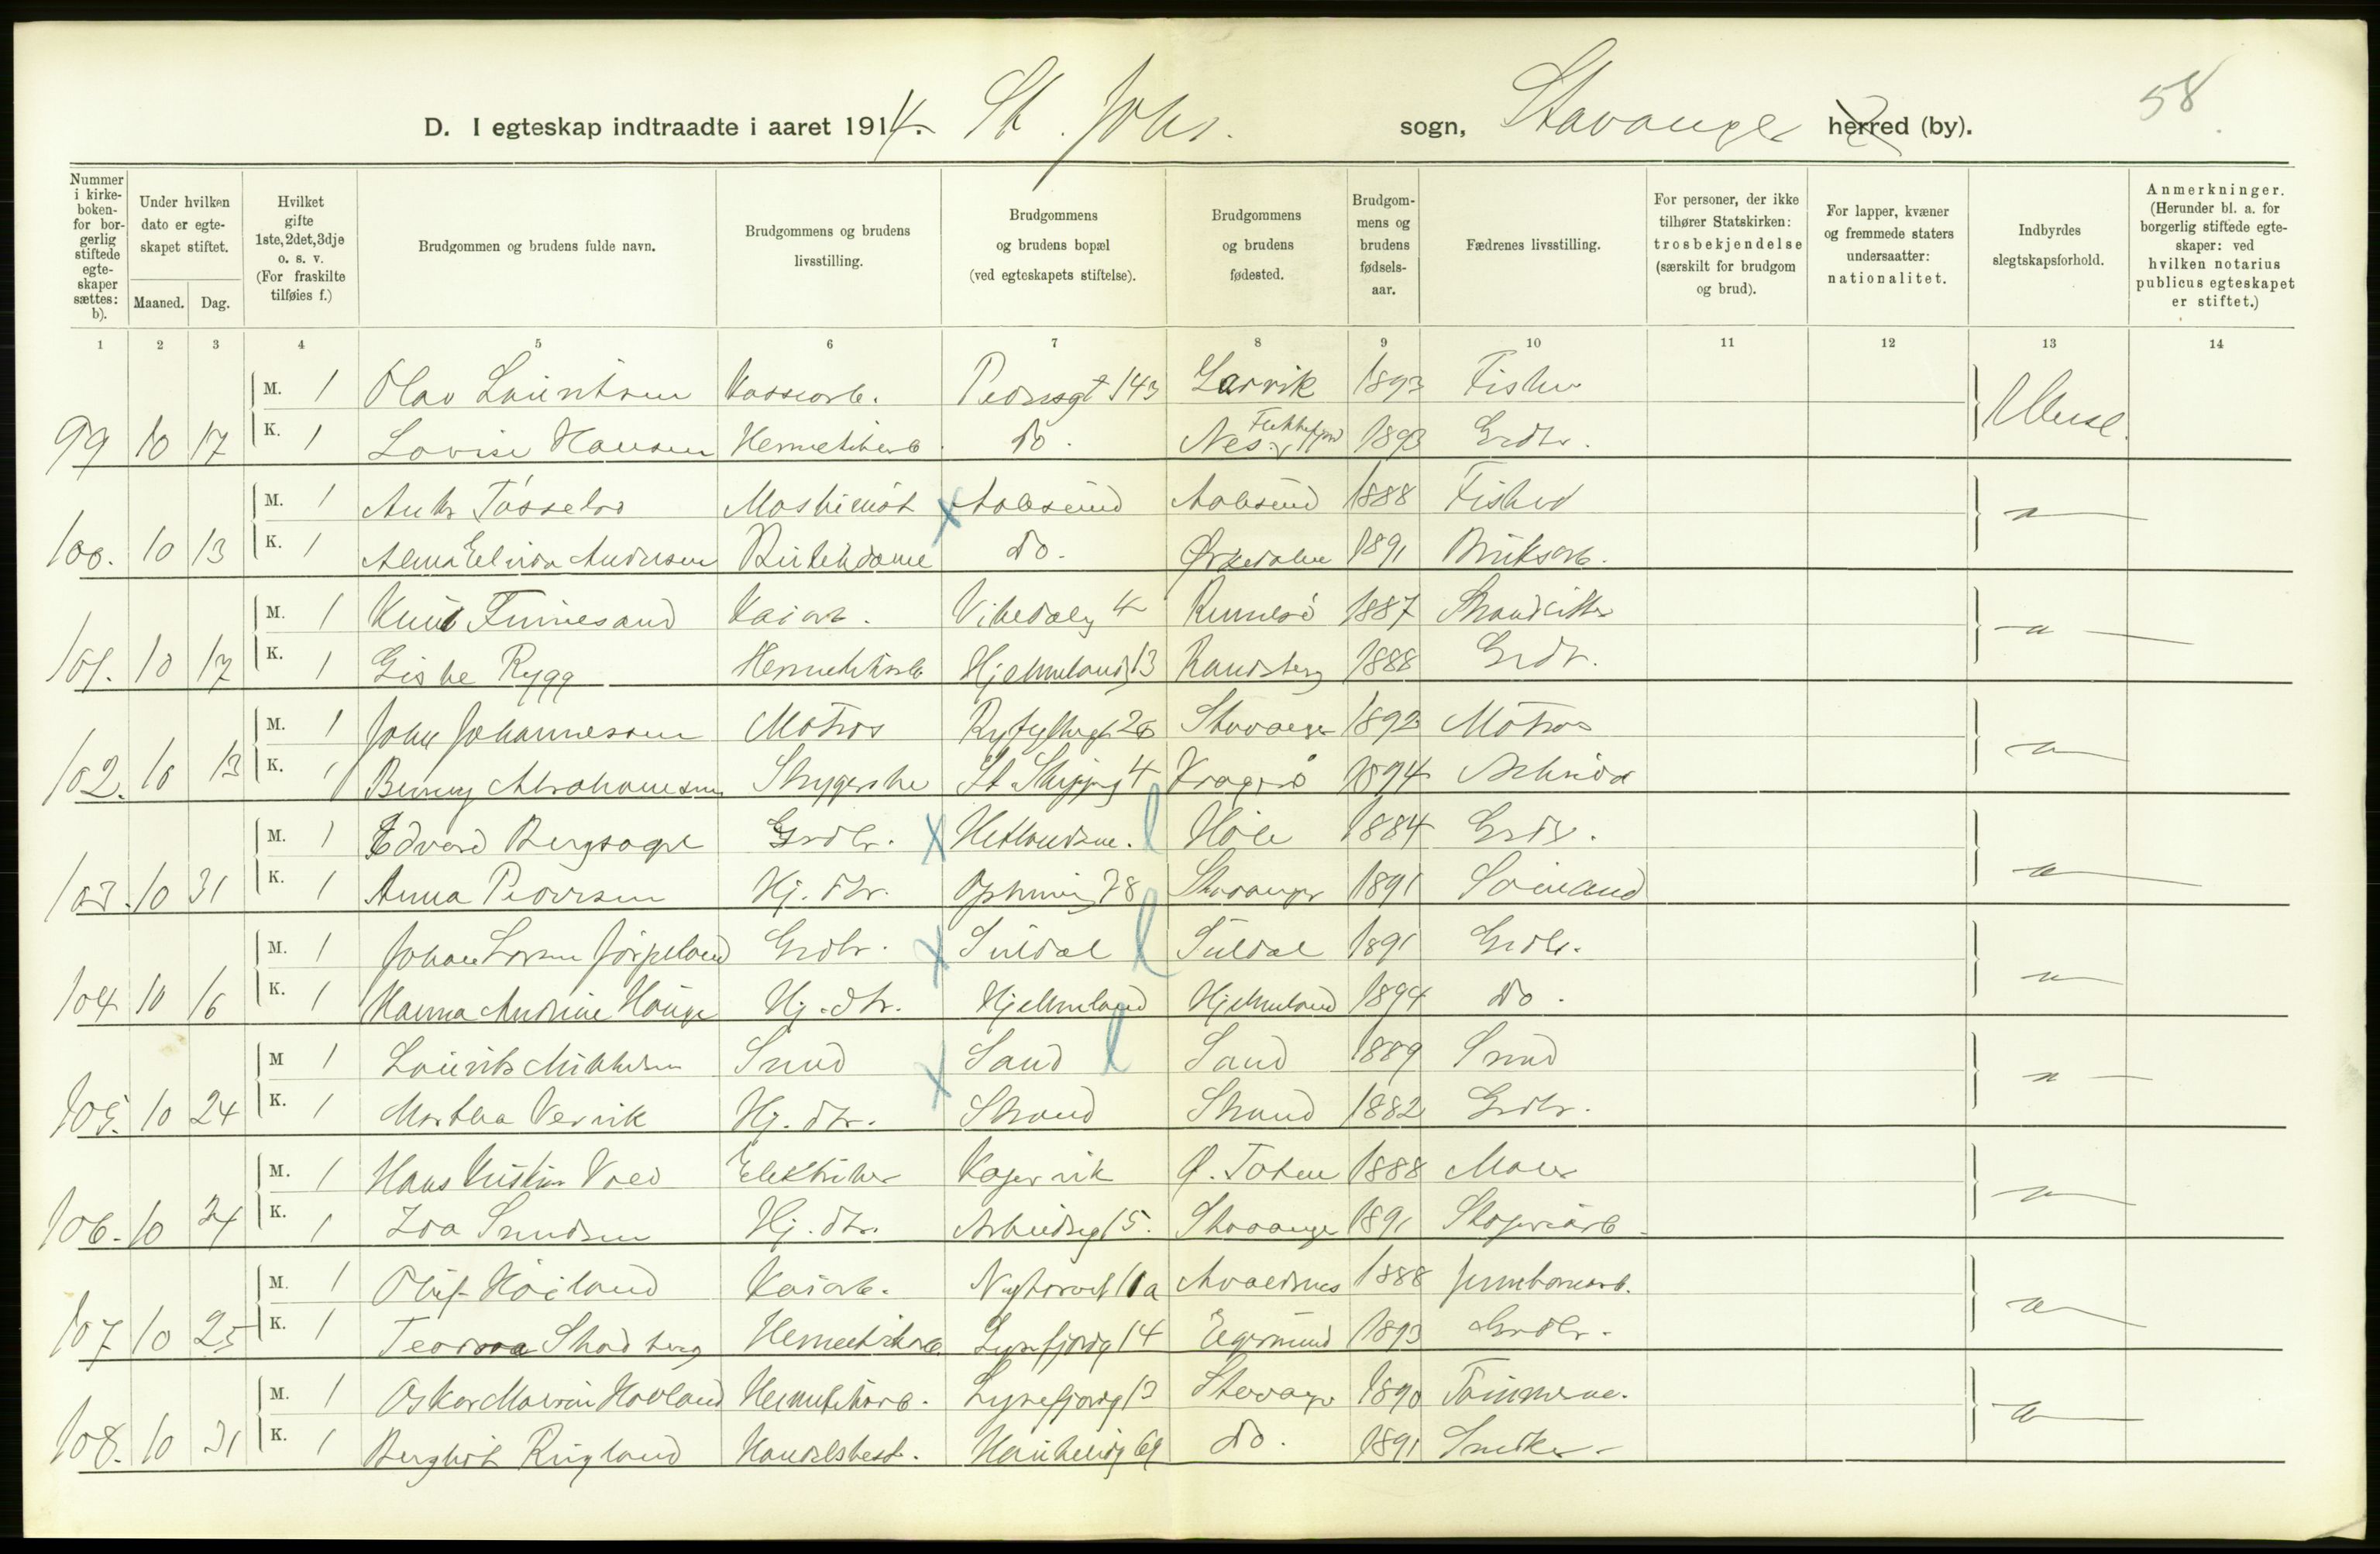 58
D. I egteskap indtraadte i aaret 1914. St. Johs. sogn, Stavanger herred (by).
Nummer i kirke-boken- for bor-gerlig stiftede egte-skaper sættes: b).
Under hvilken dato er egte-skapet stiftet.
Maaned. Dag.
Hvilket gifte 1ste, 2det, 3dje o. s. v. (For fraskilte tilføies f.)
Brudgommen og brudens fulde navn.
Brudgommens og brudens livsstilling.
Brudgommens og brudens bopæl (ved egteskapets stiftelse).
Brudgommens og brudens fødested.
Brudgom-mens og brudens fødsels-aar.
Fædrenes livsstilling.
For personer, der ikke tilhører Statskirken: trosbekjendelse (særskilt for brudgom og brud).
For lapper, kvæner og fremmede staters undersaatter: nationalitet.
Indbyrdes slegtskapsforhold.
Anmerkninger. (Herunder bl. a. for borgerlig stiftede egte-skaper: ved hvilken notarius publicus egteskapet er stiftet.)
1 2 3 4 5 6 7 8 9 10 11 12 13 14
M. 1 Olav Lauritsen Pedersgt 143 Larvik 1893 Fisker
99 10 17 K. 1 Lovise Hansen Hermetikarb. do. Nes 1893 Grdbr.
M. 1 Maskinist Aalesund Aalesund 1888 Fisker
100. 10 13 K. 1 Alma Elvida Andersen Butikdame do. Ørkedalen 1891 Bruksarb.
M. 1 Knut Finnesand Kaiarb. Vikedalsg 4 Rennesö 1887 Strandsitter
101. 10 17 K. 1 Giske Rygg Hermetikarb Hjelmelandsg 13 Randaberg 1888 Grdbr.
M. 1 John Johannesen Matros Ryfylkegt 26 Stavanger 1892 Matros
102. 10 13 K. 1 Benny Abrahamsen Strygerske St. Skippergt 4 Kragerö 1894 Arbeider
M. 1 Edvard Bergsagel Grdbr. Hetlandsm. Höle 1884 Grdbr.
103. 10 31 K. 1 Anna Pedersen Hj. dtr. 78 Stavanger 1891 Sömand
M. 1 Johan Lorens Jörpeland Grdbr. Suldal Suldal 1891 Grdbr.
104 10 16 K. 1 Hanna Andrine Hauge Hj. dtr. Hjelmeland Hjelmeland 1894 do.
M 1 Laurits Mikkelsen Smed Sand Sand 1889 Smed
105. 10 24 K. 1 Martha Vervik Hj. dtr. Strand Strand 1882 Grdbr.
M. 1 Hans Kristian Vold Elektriker Kopervik Ø. Toten 1888 Maler
106. 10 24 K. 1 Hj. dtr. Arbeidsg 15. Stavanger 1891
M. 1 Oluf Höiland Kaiarb. Nytorvet 11a Avaldsnes 1888 Jernbanearb.
107 10 25 K. 1 Teodora Skadberg Hermetikarb. Lysefjordg 14 Egersund 1893 Grdbr.
M. 1 Oskar Martin Hovland Hermetikarb. Lysefjordg 13 Stavanger 1890 Tömmerm.
108. 10 31 K. 1 Bergliot Ringland Handelsbest. Haukelig 69 do. 1891 Snedker